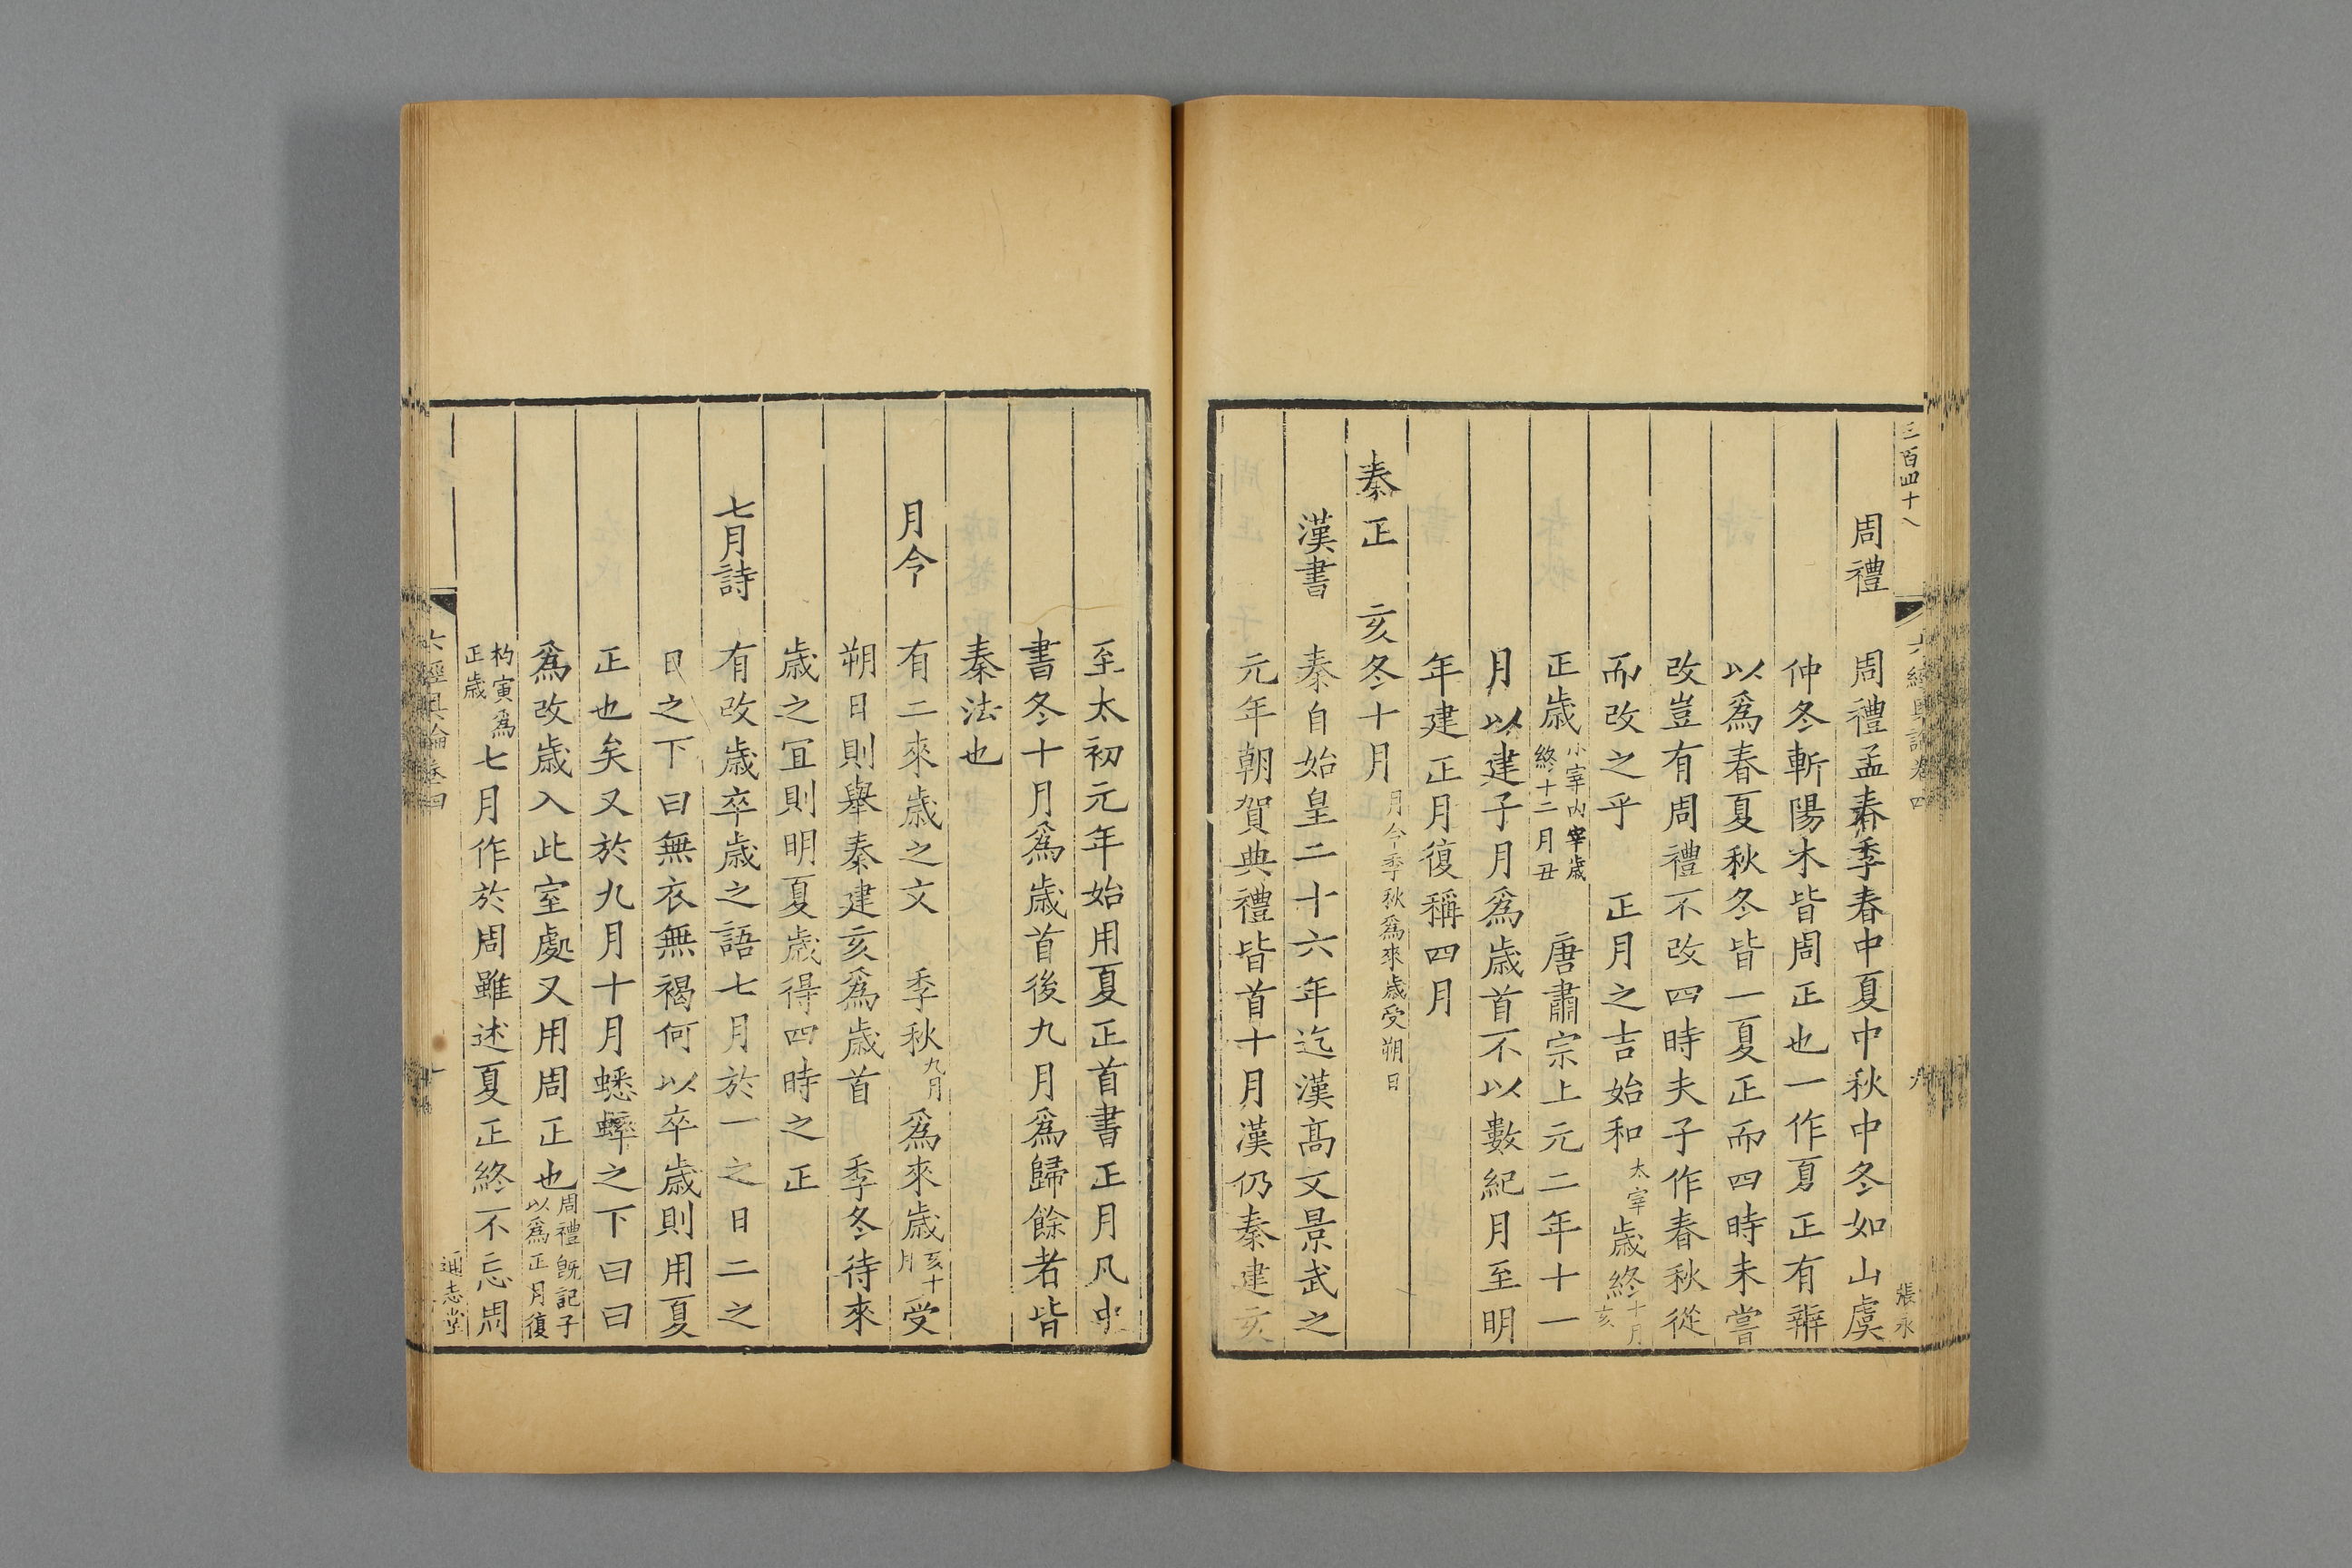 三百四十八
六經奧論卷四
九
張永
周禮 周禮孟春季春中夏中秋中冬如山虞
仲冬斬陽木皆周正也一作夏正有辨
以爲春夏秋冬皆一夏正而四時未嘗
改豈有周禮不改四時夫子作春秋從
而改之乎 正月之吉始和太宰歲終十月亥
正歲小宰內宰歲終十二月丑 唐肅宗上元二年十一
月以建子月爲歲首不以數紀月至明
年建正月復稱四月
秦正 亥冬十月月令季秋爲來歲受朔日
漢書 秦自始皇二十六年迄漢高文景武之
元年朝賀典禮皆首十月漢仍秦建亥
至太初元年始用夏正首書正月凡史
書冬十月爲歲首後九月爲歸餘者皆
秦法也
月令 有二來歲之文 季秋九月爲來歲亥十月受
朔日則舉秦建亥爲歲首 季冬待來
歲之宜則明夏歲得四時之正
七月詩 有改歲卒歲之語七月於一之日二之
日之下曰無衣無褐何以卒歲則用夏
正也矣又於九月十月蟋蟀之下曰曰
爲改歲入此室處又用周正也周禮旣記子以爲正月復
杓寅爲正歲七月作於周雖述夏正終不忘周
六經奧論卷四
通志堂